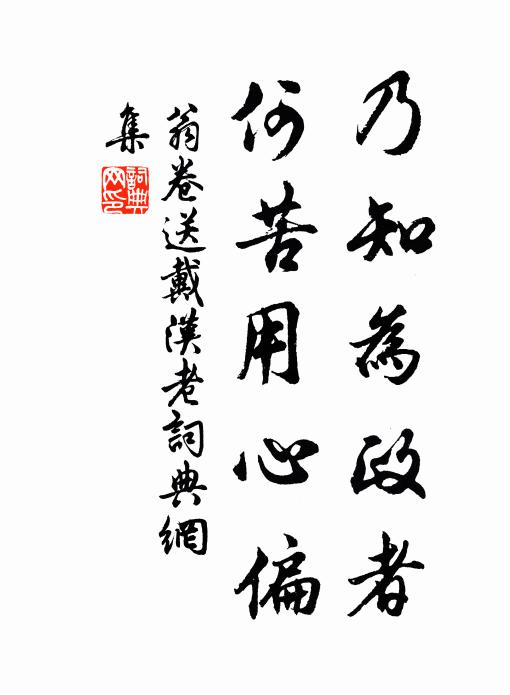 乃知為政者
何苦用心偏
翁卷送戴漢老詞典網
集
詞典
网印